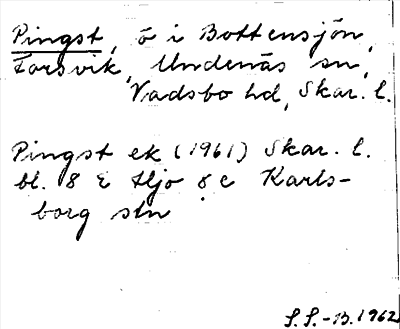 Pingst, ö i Bottensjön,
Forsvik, Undenäs sn,
Vadsbo hd, Skar. l.
Pingst ek (1961) Skar. l.
bl. 8 E Hjo 8 c Karls-
borg stn
S.S.-B. 1962